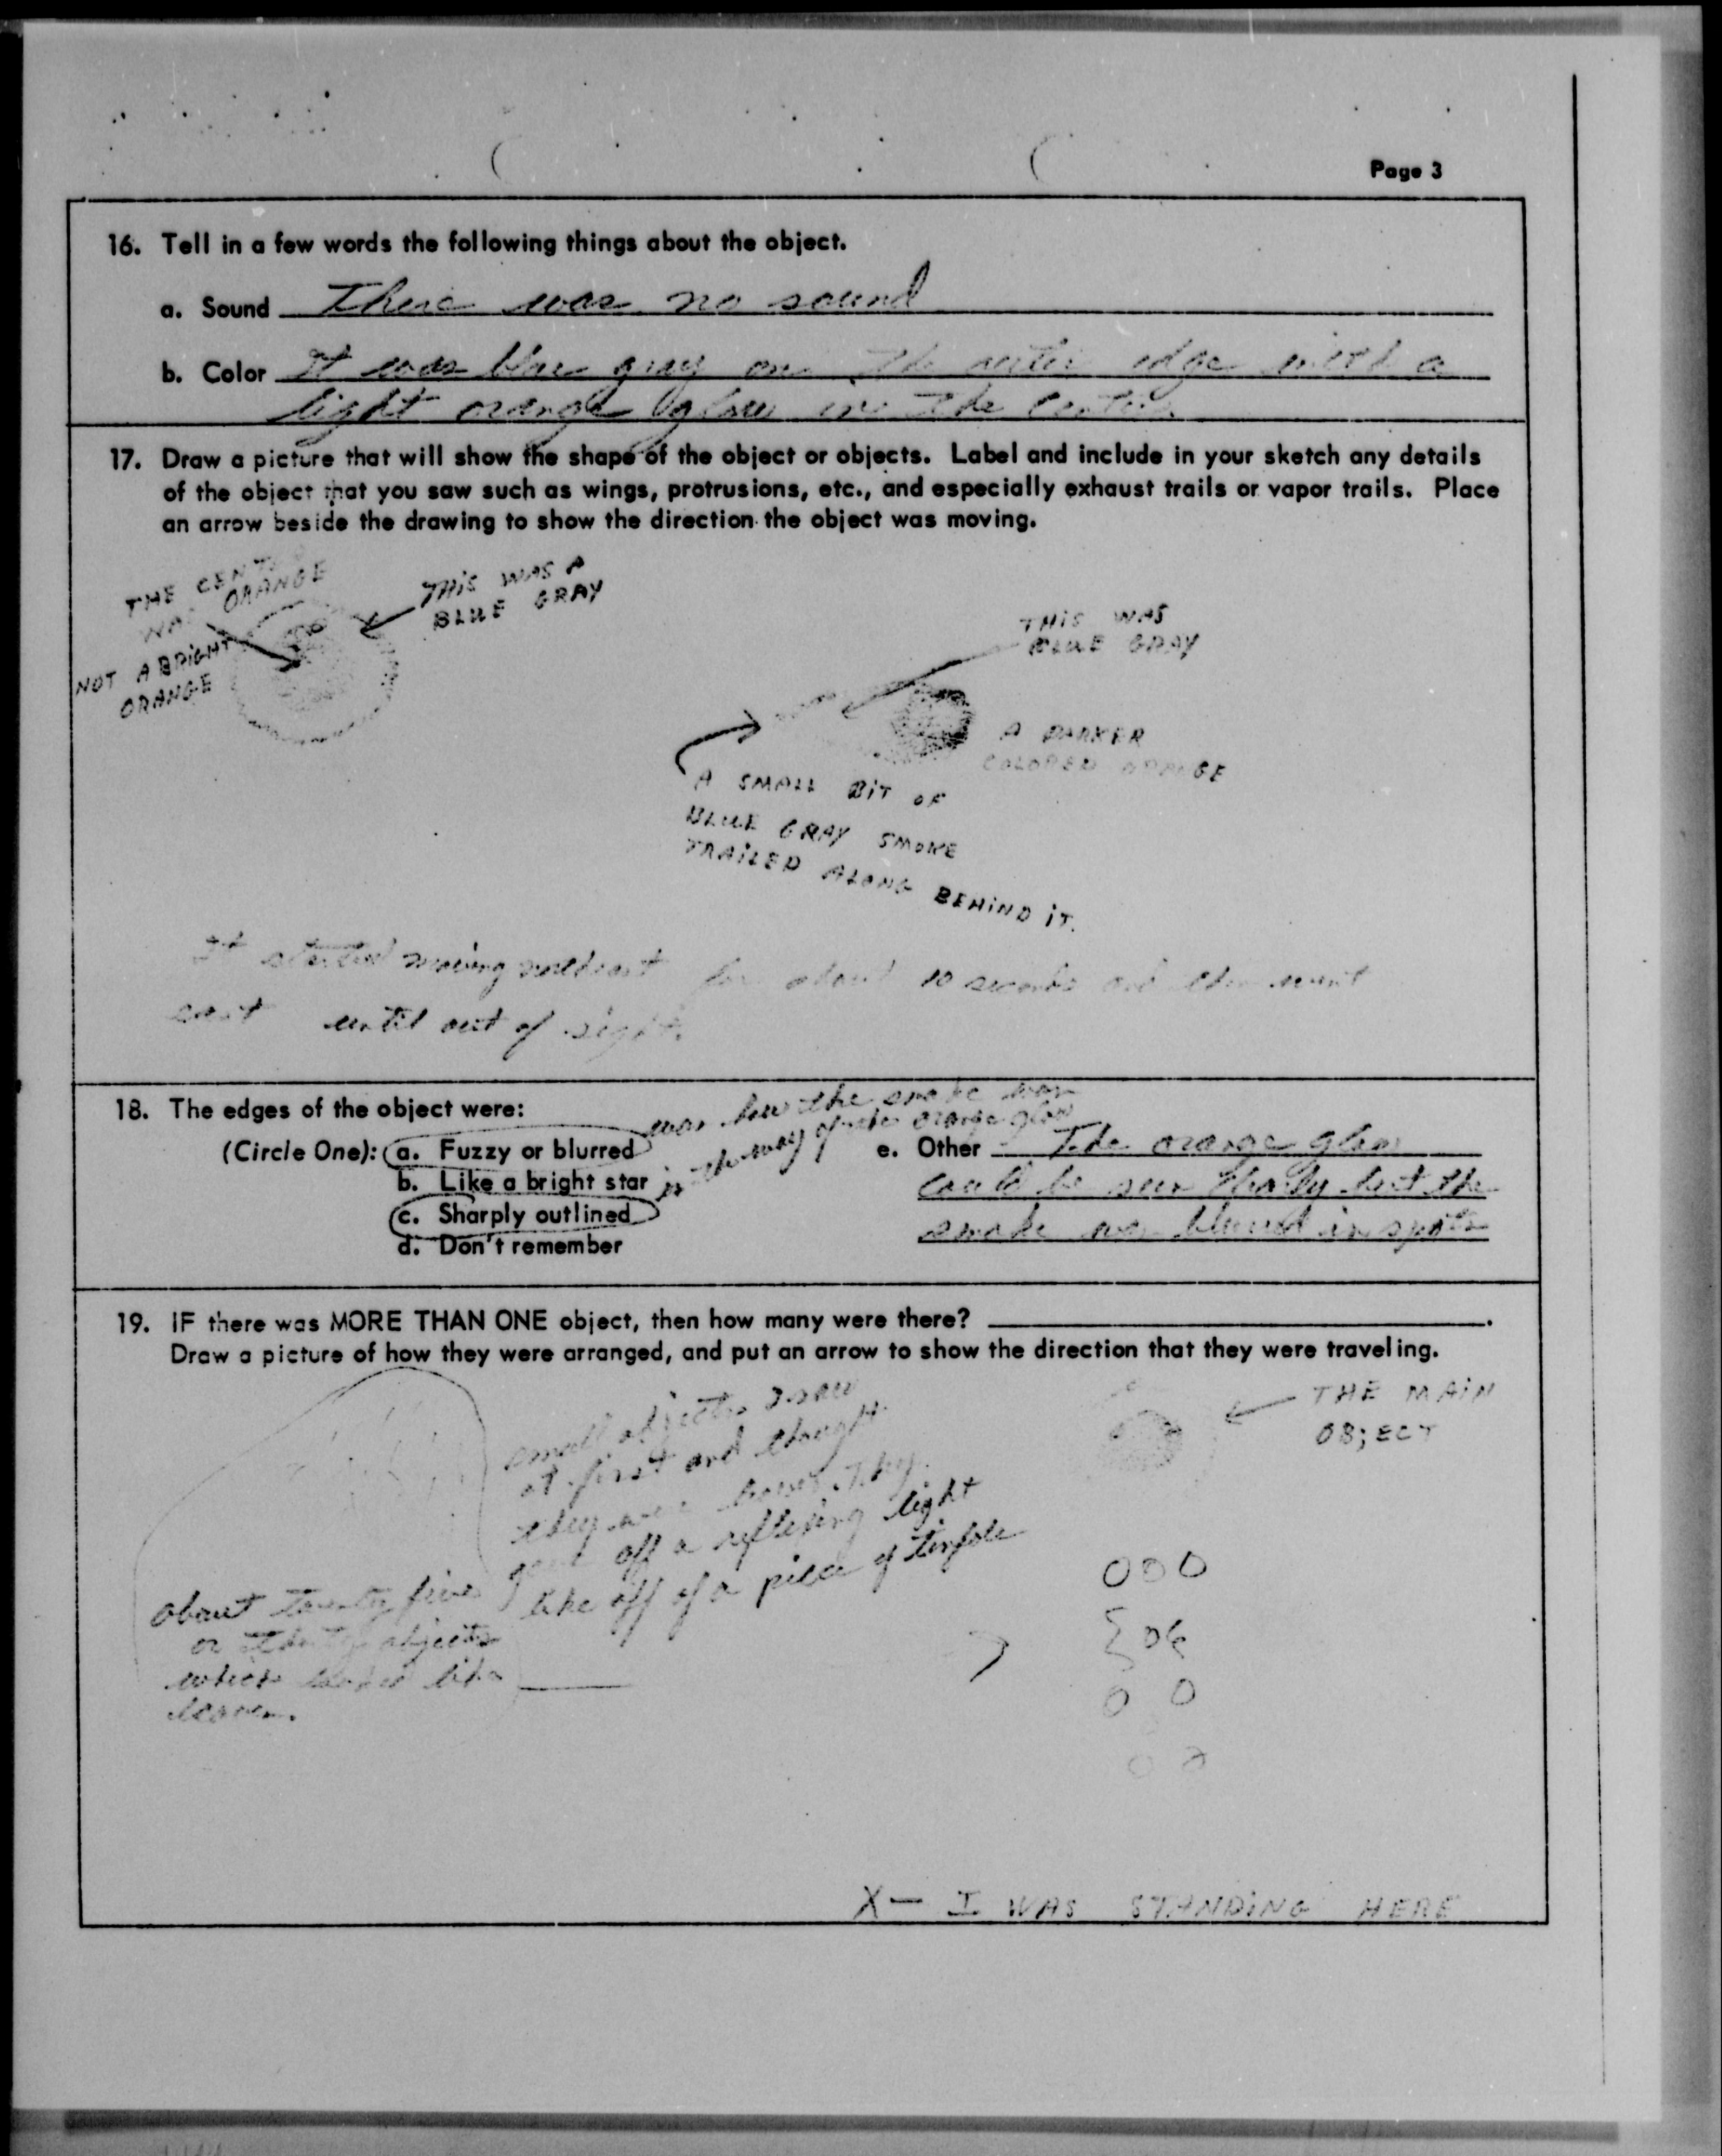 Page 3
16. Tell in a few words the following things about the object.
a. Sound There was no sound
b. Color It was blue gray on the outer edge with a
light orange glow in the center
17. Draw a picture that will show the shape of the object or objects. Label and include in your sketch any details
of the object that you saw such as wings, protrusions, etc., and especially exhaust trails or vapor trails. Place
an arrow beside the drawing to show the direction the object was moving.
THE CENT
WAS ORANGE
NOT A BRIGHT
ORANGE
THIS WAS A
BLUE GRAY
THIS WAS
BLUE GRAY
A DARKER
COLORED ORANGE
A SMALL BIT OF
BLUE GRAY SMOKE
TRAILED ALONG BEHIND IT.
It started moving northeast for about 10 seconds and then went
east until out of sight.
18. The edges of the object were:
(Circle One): a. Fuzzy or blurred
b. Like a bright star
c. Sharply outlined
d. Don't remember
was how the smoke was
in the way of the orange glow
e. Other The orange glow
could be seen but the
smoke was blurred in spots
19. IF there was MORE THAN ONE object, then how many were there?
Draw a picture of how they were arranged, and put an arrow to show the direction that they were traveling.
small objects I saw
at first and thought
they were leaves. They
gave off a reflexing light
like off of a piece of tinfole
about twenty five
or thirty objects
which looked like
leaves.
THE MAIN
OB;ECT
X— I WAS STANDING HERE